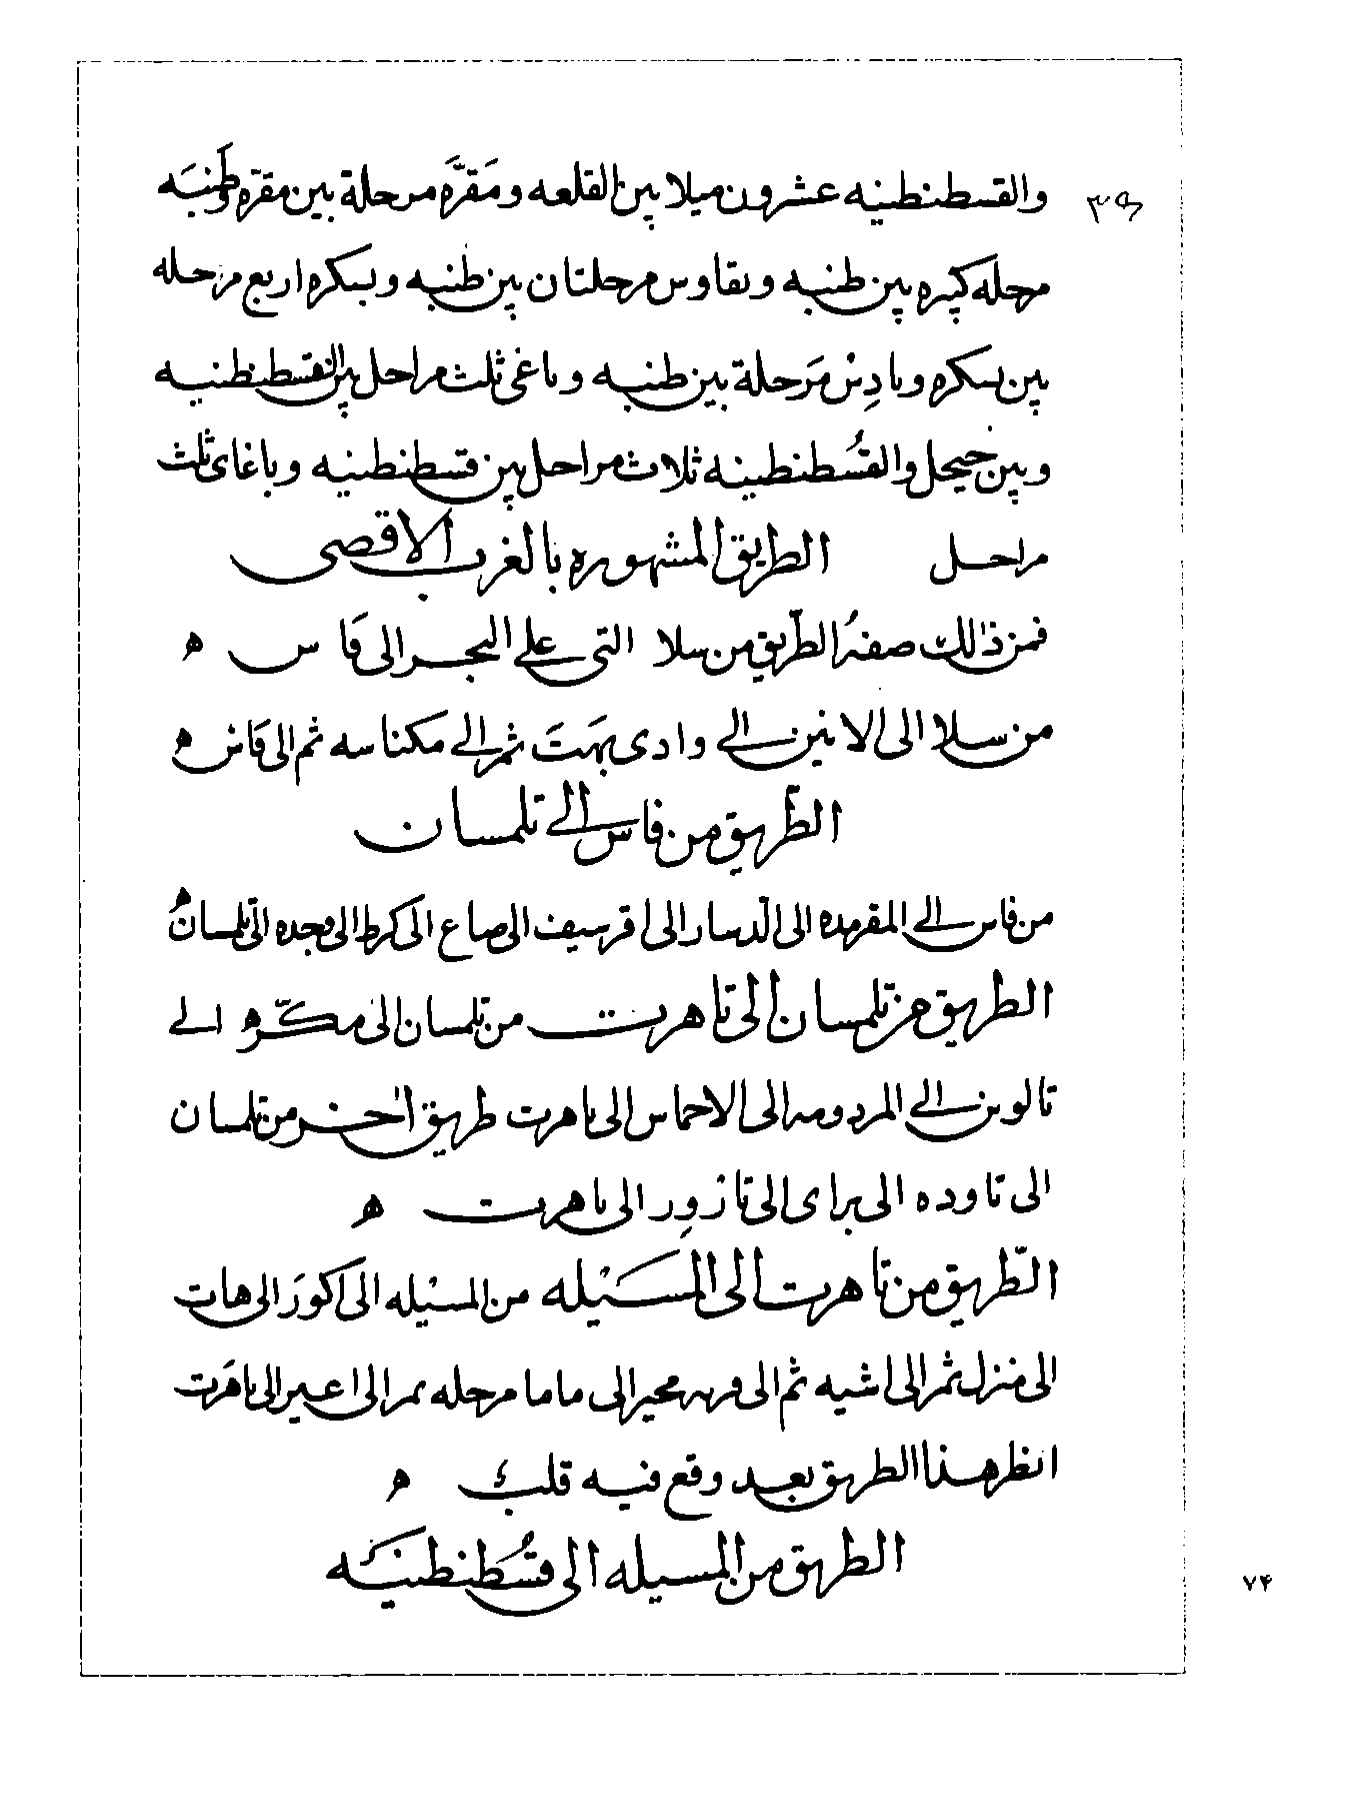 والقسطنطنيه عشرون ميلا بين القلعه ومَقَرَّه مرحلة بين مقرّه وطُنبَه
مرحله كبيره بين طنبه ونقاوس مرحلتان بين طنبه وبسكره اربع مرحله
بين بسكره وبادِسْ مَرحلة بين طنبه وباغى ثلث مراحل بين القسطنطنيه
وبين جيجل والقُسطنطينه ثلاث مراحل بين قسطنطنيه وباغاى ثلث
مراحل الطريق المشهوره بالغرب الاقصى
فمن ذالك صفهُ الطّريق من سلا التى على البحر الى فَاس ه
من سلا الى الاثنين الى وادى بَهَتَ ثم الى مكناسه ثم الى فَاس ه
الطّريق من فاس الى تلمسان
من فاس الى المقرمده الى الدسار الى اقرسيف الى صاع الى كرط الى وجده الى تلمسان ه
الطريق من تلمسان الى تاهرت من تلمسان الى مكّره الى
تالوين الى المردومه الى الاحماس الى تاهرت طريق اخر من تلمسان
الى تاوده الى براى الى تازور الى تاهرت ه
الطّريق من تاهرت الى المَسَيْله من المسيْله الى اكورَ الى هات
الى منزل ثم الى اشيه ثم الى قريه محير الى ماما مرحله ثم الى اعبر الى تاهَرت
انظر هذا الطريق بعد وقع فيه قلب ه
الطريق من المسيله الى قسُطنطنيَه
۷۴